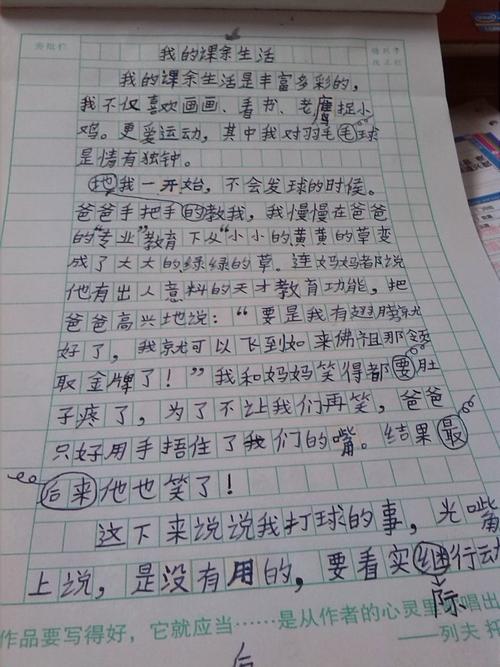 我的课余生活
我的课余生活是丰富多彩的，
我不仅喜欢画画、看书、老鹰捉小
鸡。更爱运动，其中我对羽毛毛球
是情有独钟。
把我一开始，不会发球的时候。
爸爸手把手的教我，我慢慢在爸爸
的“专业”教育下从“小小的黄黄的草变
成了大大的绿绿的草。连妈妈都说
他有出人意料的天才教育功能，把
爸爸高兴地说：“要是我有翅膀就
好了，我就可以飞到如来佛祖那领
取金牌了！”我和妈妈笑得都要肚
子疼了，为了不让我们再笑，爸爸
只好用手捂住了我们的嘴。结果最
后来他也笑了！
这下来说说我打球的事，光嘴
上说，是没有用的，要看实继行动
际
作品要写得好，它就应当……是从作者的心灵里唱出
——列夫